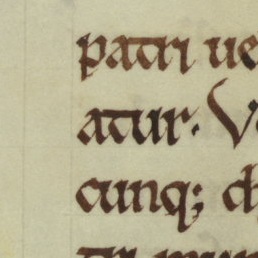 patri ue
atur. V
cunq; ch